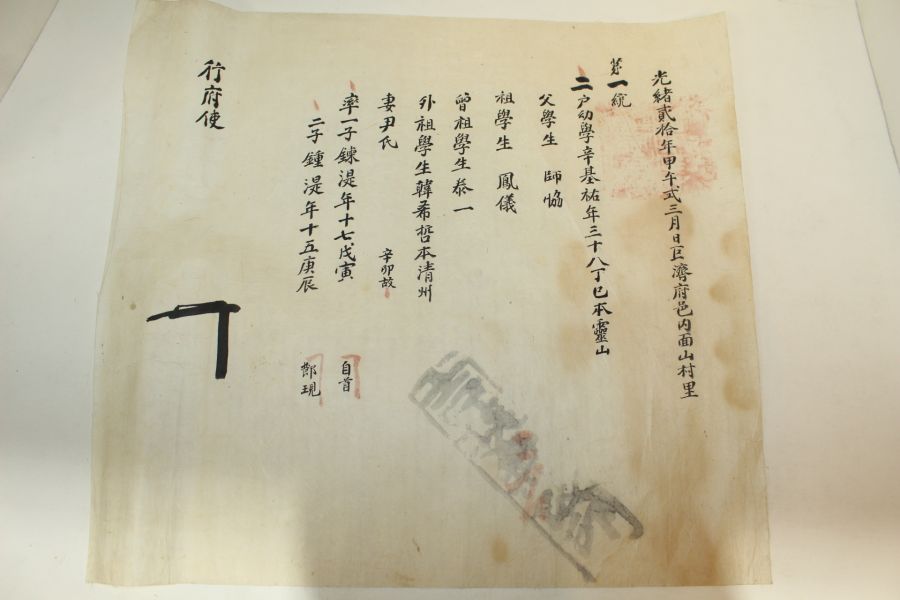 光緒貳拾年甲午式三月日巨濟府邑內面山村里
第一統
二戶幼學辛基祐年三十八丁巳本靈山
父學生 師恊
祖學生 鳳儀
曾祖學生泰一
外祖學生韓希哲本清州
妻尹氏 辛卯故
率一子鍊湜年十七戊寅 自首
二子鍾湜年十五庚辰 鄭現
行府使